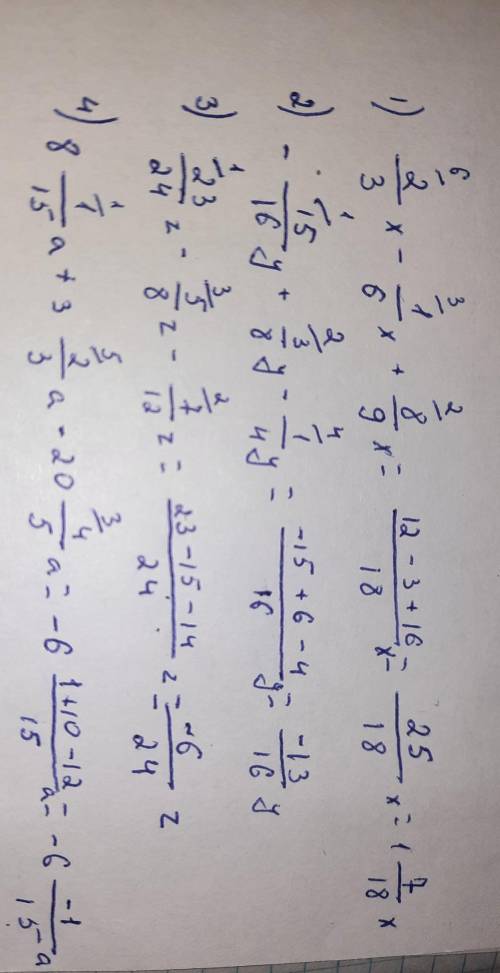 1) 2/3⁶ x - 1/6³ x + 8/9² x = (12 - 3 + 16)/18 x = 25/18 x = 1 7/18 x
2) - 15/16¹ y + 3/8² y - 1/4⁴ y = (-15 + 6 - 4)/16 y = -13/16 y
3) 23/24¹ z - 5/8³ z - 7/12² z = (23 - 15 - 14)/24 z = -6/24 z
4) 8 1/15¹ a + 3 2/3⁵ a - 20 4/5³ a = -6 (1 + 10 - 12)/15 a = -6 -1/15 a